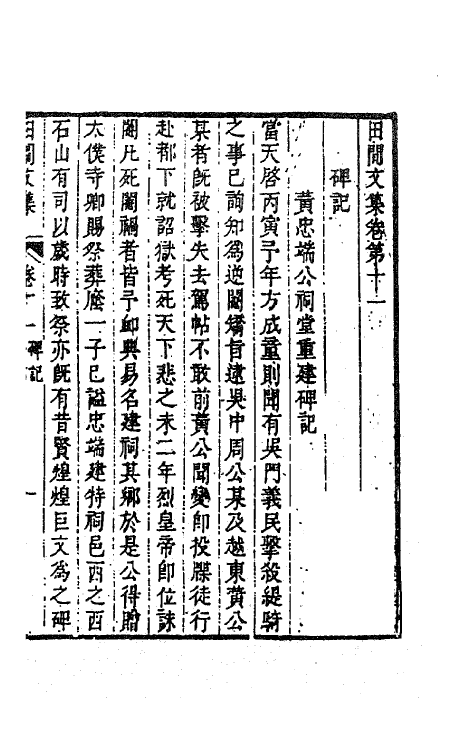 田間文集卷第十一
碑記
黃忠端公祠堂重建碑記
當天啓丙寅予年方成童則聞有吳門義民擊殺緹騎
之事已詢知為逆閹矯旨逮吳中周公某及越東黃公
某者既被擊失去駕帖不敢前黃公聞變卽投牒徒行
赴都下就詔獄考死天下悲之未二年烈皇帝卽位誅
閹凡死閹禍者皆予卹典易名建祠其鄉於是公得贈
太僕寺卿賜祭葬廕一子已謚忠端建特祠邑西之西
石山有司以歲時致祭亦旣有昔賢煌煌巨文為之碑
田間文集 卷十一 碑記 一